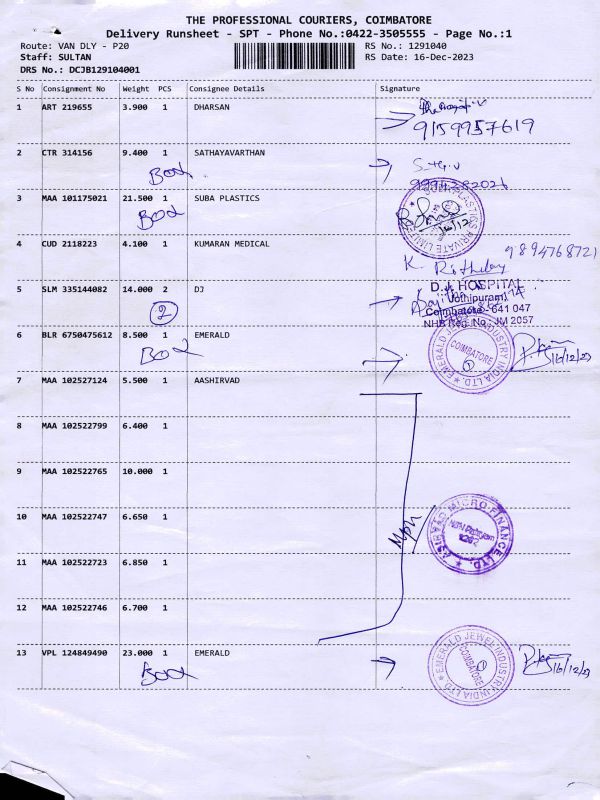 THE PROFESSIONAL COURIERS, COIMBATORE
Delivery Runsheet - SPT - Phone No.:0422-3505555 - Page No.:1
Route: VAN DLY - P20 RS No.: 1291040
Staff: SULTAN RS Date: 16-Dec-2023
DRS No.: DCJB129104001
S No Consignment No Weight PCS Consignee Details Signature
1 ART 219655 3.900 1 DHARSAN
9159957619
2 CTR 314156 9.400 1 SATHAYAVARTHAN
Box
3 MAA 101175021 21.500 1 SUBA PLASTICS
Box
4 CUD 2118223 4.100 1 KUMARAN MEDICAL
9894768721
5 SLM 335144082 14.000 2 DJ
D.J. HOSPITAL
Coimbatore - 641 047
NHB Reg. No. JM 2057
2
6 BLR 6750475612 8.500 1 EMERALD
Box
EMERALD JEWEL INDUSTRY INDIA LTD
COIMBATORE
16/12/23
7 MAA 102527124 5.500 1 AASHIRVAD
8 MAA 102522799 6.400 1
9 MAA 102522765 10.000 1
10 MAA 102522747 6.650 1
ASIRVAD MICRO FINANCE LTD.
11 MAA 102522723 6.850 1
12 MAA 102522746 6.700 1
13 VPL 124849490 23.000 1 EMERALD
Box
EMERALD JEWEL INDUSTRY INDIA LTD
COIMBATORE
16/12/23